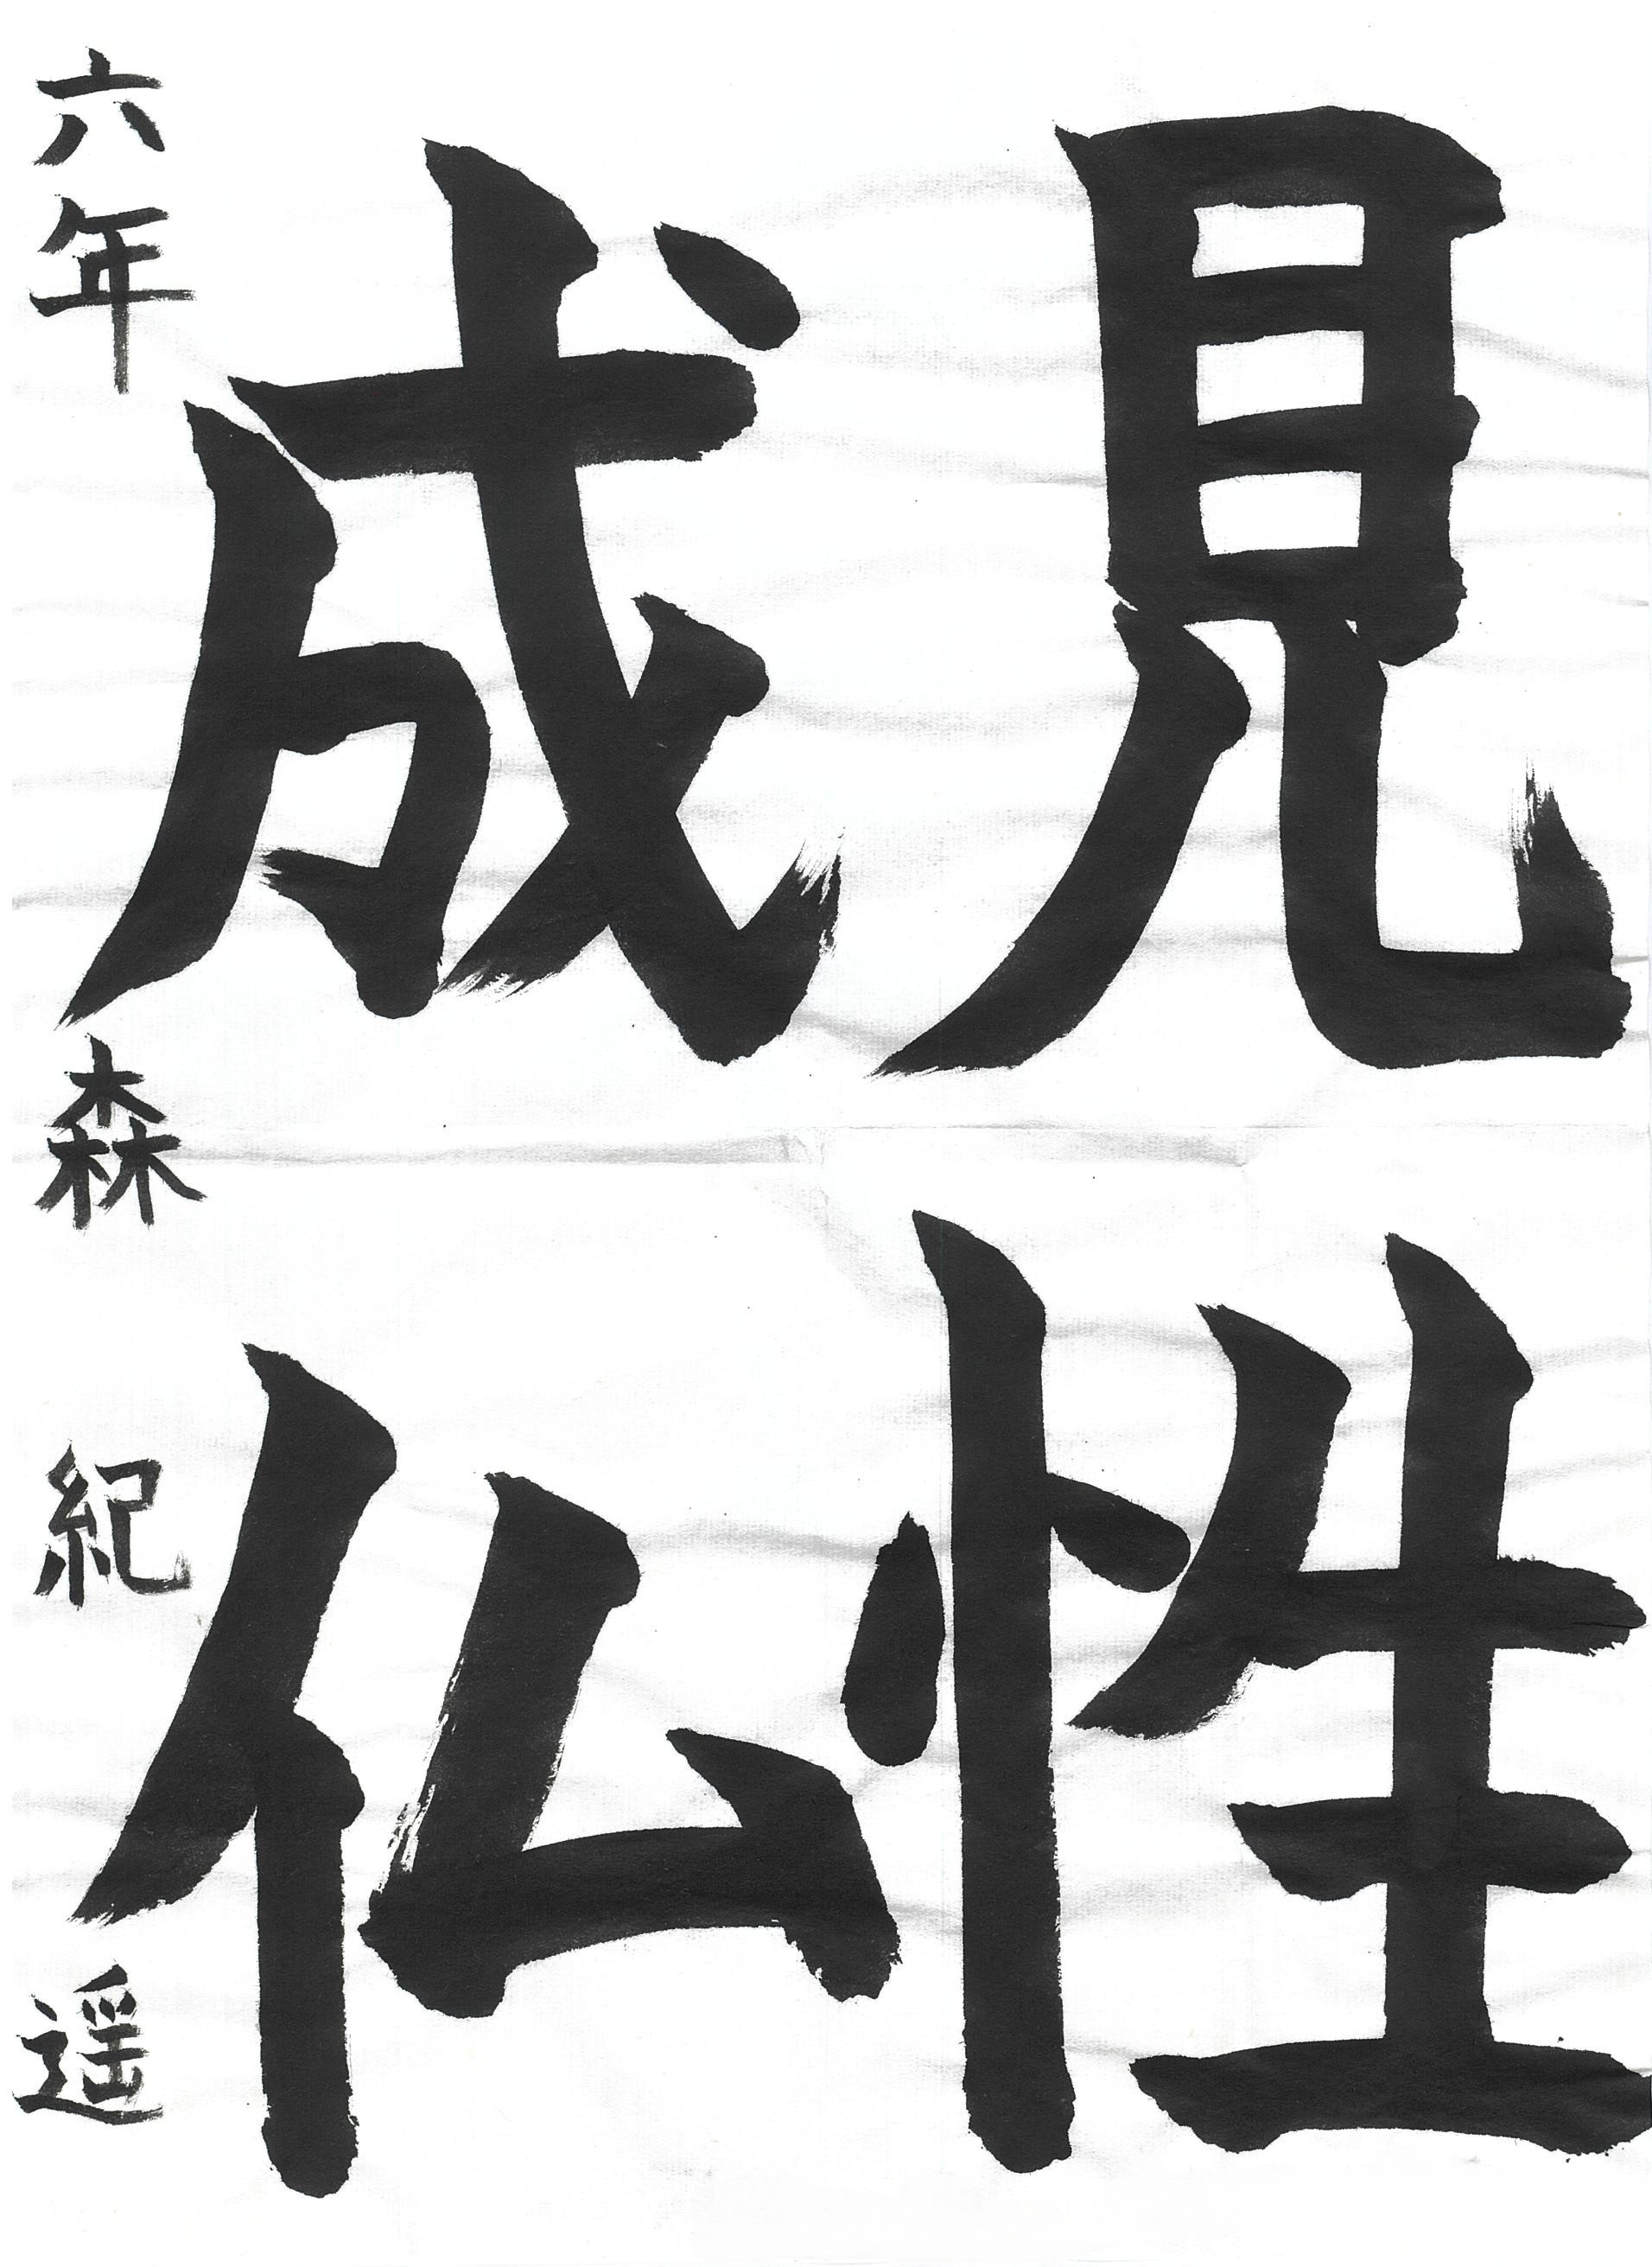 見性
成仏
六年 森 紀遥